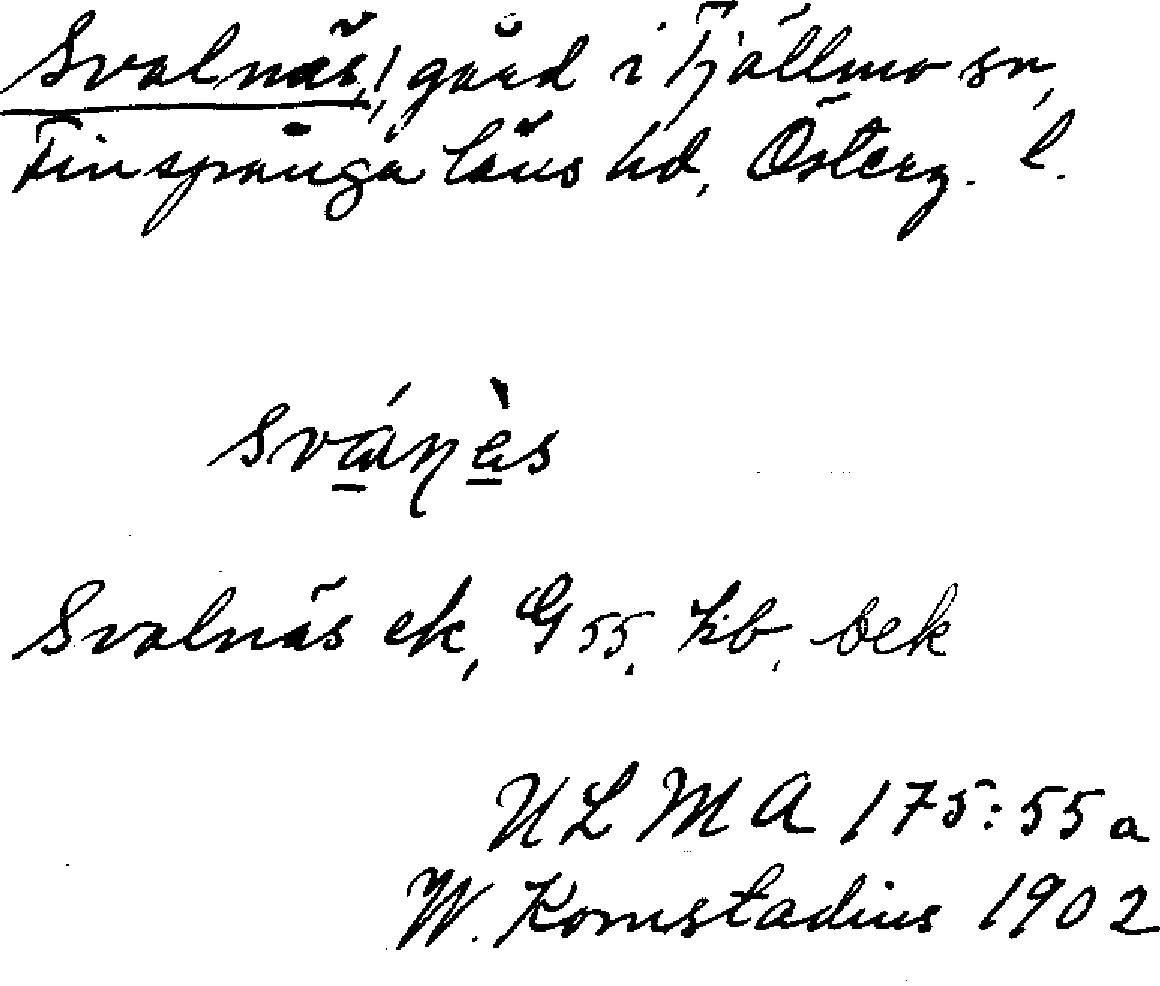 Svalnäs, gård i Tjällmo sn,
Finspånga läns hd, Österg. l.
Svánàs
Svalnäs ek, G 55, kb, bek
ULMA 175:55a
W. Komstadius 1902